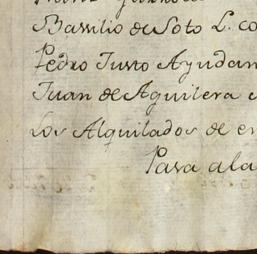 Bassilio de Soto L. co
Pedro Justo Ayudan
Juan de Aguilera
Los Alquilados de en
Para ala